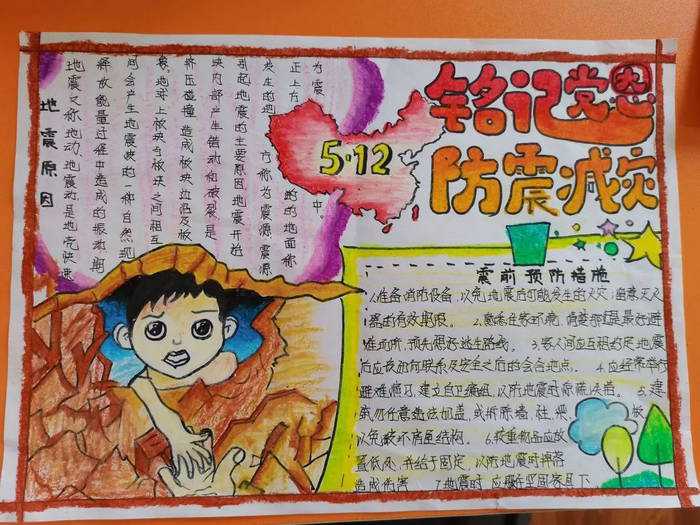 铭记党恩
防震减灾
5·12
地震原因
地震又称地动、地震动是地壳快速
释放能量过程中造成的振动,期
间会产生地震波的一种自然现
象。地球上板块与板块之间相互
挤压碰撞,造成板块边沿及板
块内部产生错动和破裂,是
引起地震的主要原因。地震开始
发生的地 方称为震源,震源
正上方 的地面称
为震 中。
震前预防措施
1.准备消防设备,以免地震后可能发生的火灾;留意灭火
器的有效期限。 2.熟悉住家环境,
难地所,预先想好逃生路线。 3.家人间应互相约定地震
后应该如何联系及安全之后的会合地点。 4.应经常举行
避难演习,建立自卫编组,以防地震时
勿任意违法加盖,或拆除墙、柱、梁、
以免破坏房屋结构。 6.较重物品应放
置低处,并给于固定,以防地震时摔落
造成伤害。 7.地震时,应